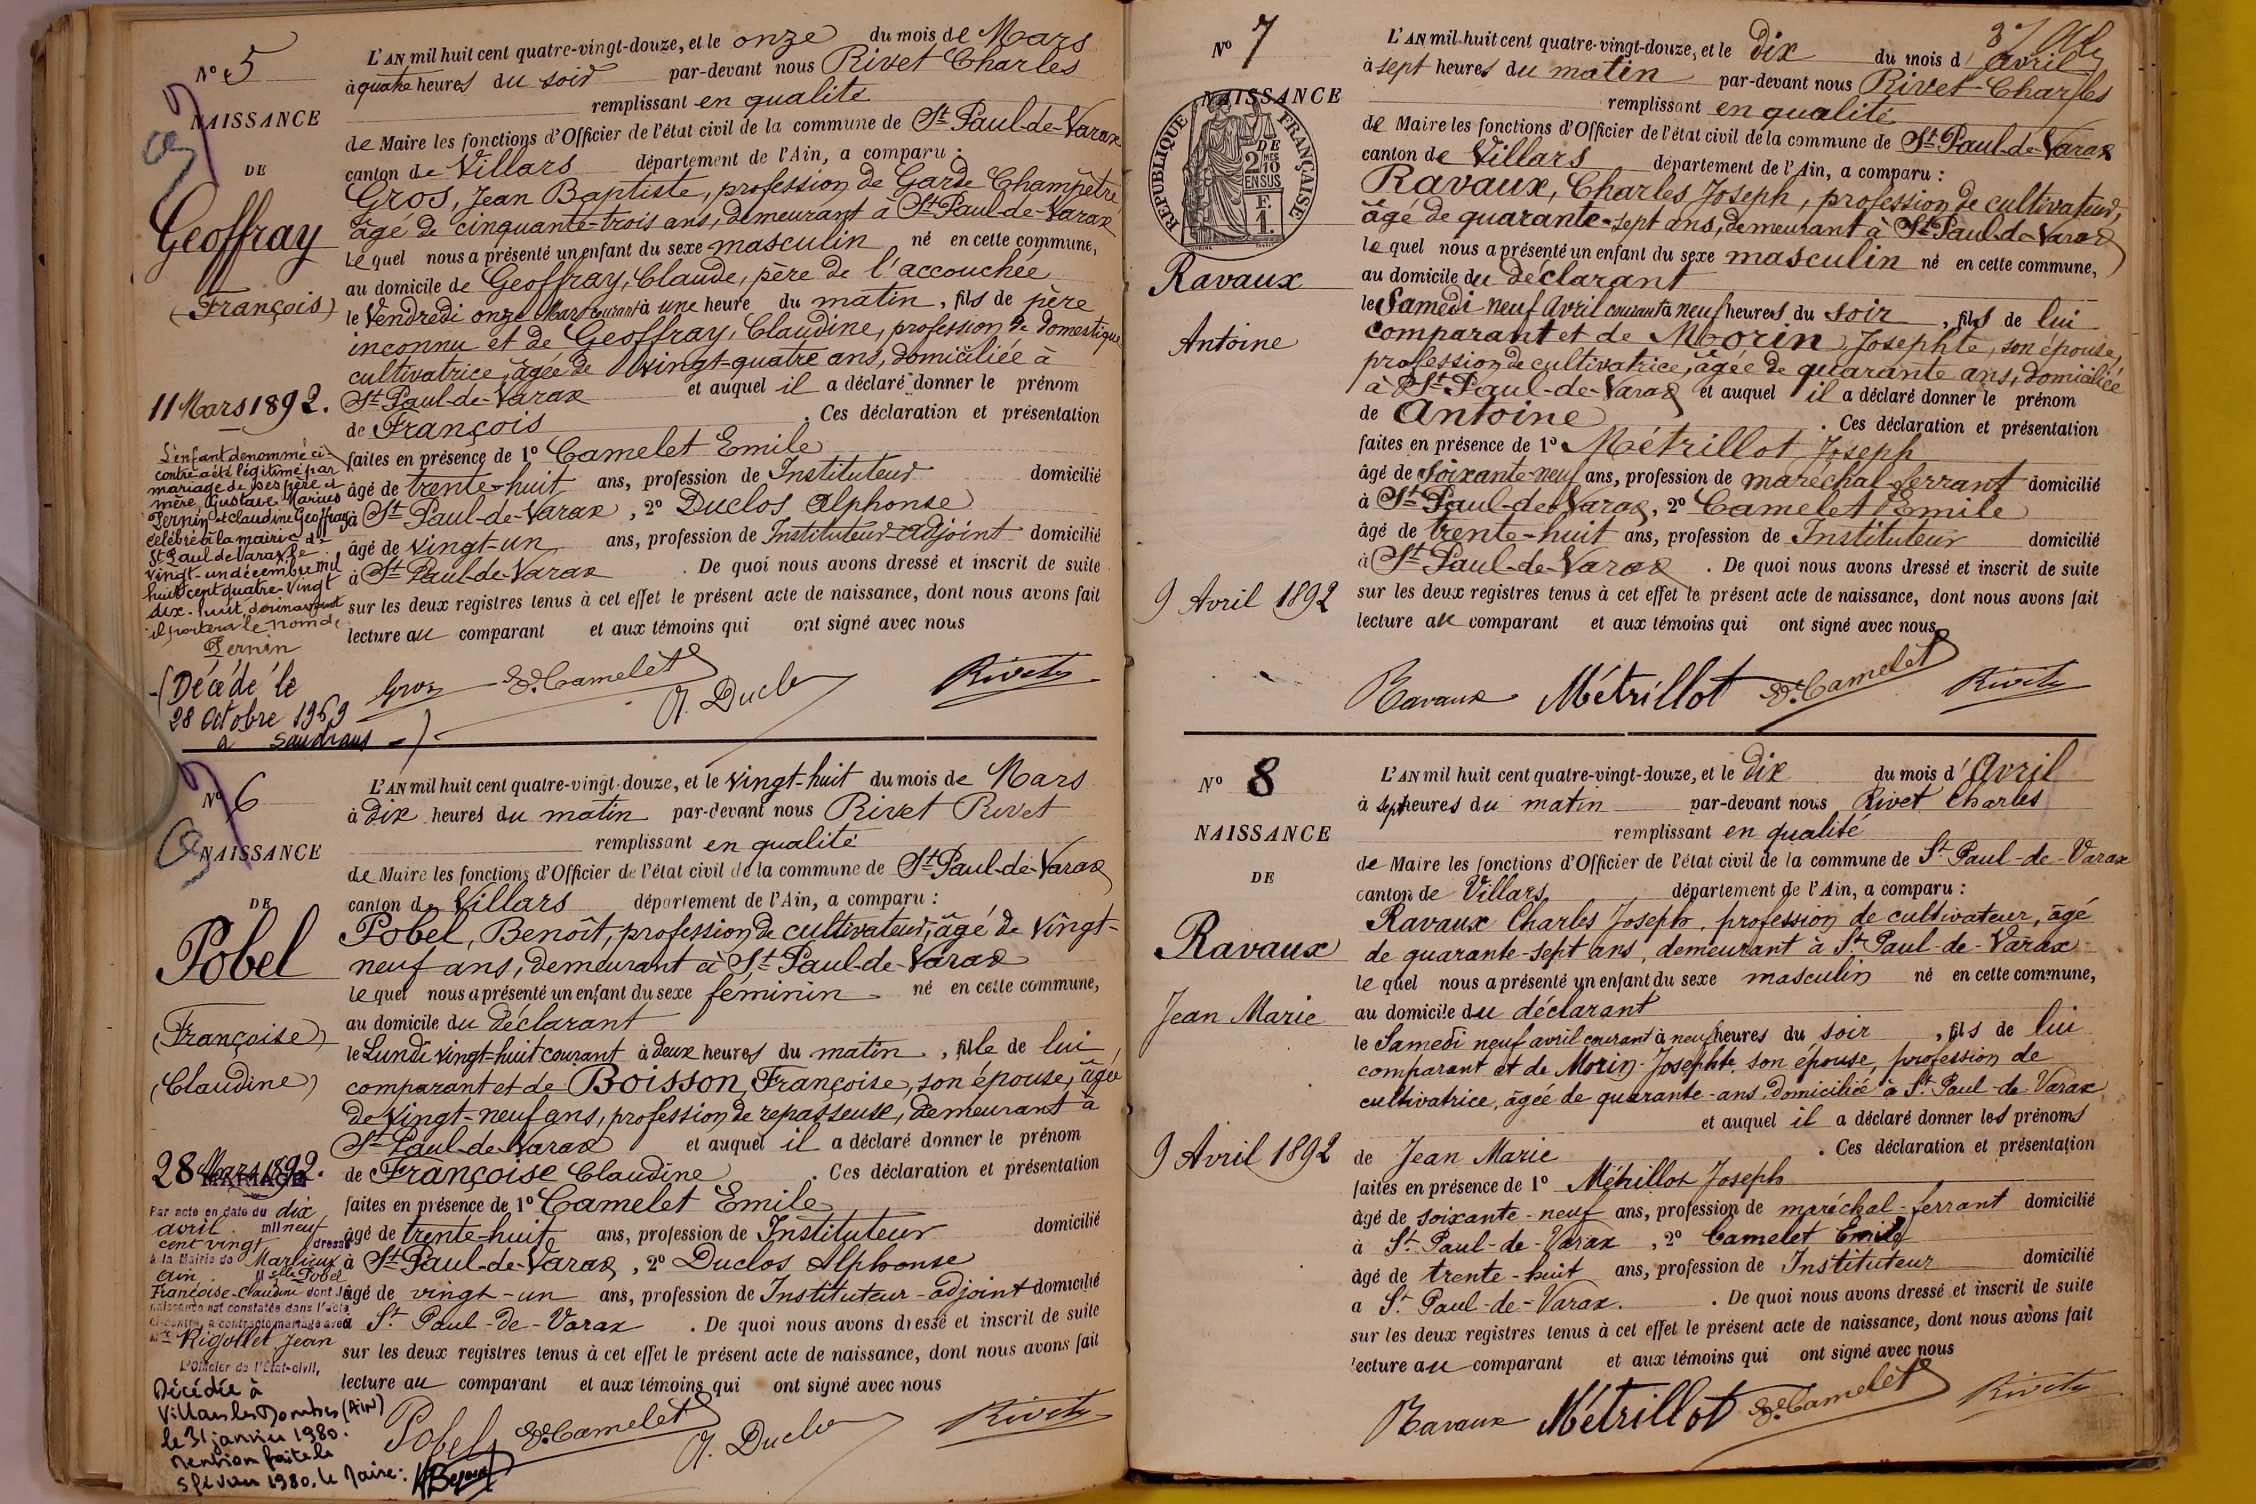 N° 5
NAISSANCE
DE
Geoffray
(François)
11 Mars 1892.
L'enfant dénommé ci-
contre a été légitimé par
mariage de ses père et
mère Gustave Marius
Pernin et Claudine Geoffray
célébré à la mairie de
St Paul de Varax le
vingt-un décembre mil
huit cent quatre-vingt
dix-huit, dorénavant
il portera le nom de
Pernin
(Décédé le
28 Octobre 1969
à Sandrans)
L'AN mil huit cent quatre-vingt-douze, et le onze du mois de Mars
à quatre heures du soir par-devant nous Rivet Charles
remplissant en qualité
de Maire les fonctions d'Officier de l'état civil de la commune de St Paul-de-Varax
canton de Villars département de l'Ain, a comparu :
Gros, Jean Baptiste, profession de Garde Champêtre
âgé de cinquante-trois ans, demeurant à St Paul-de-Varax
lequel nous a présenté un enfant du sexe masculin né en cette commune,
au domicile de Geoffray, Claude, père de l'accouchée
le Vendredi onze Mars courant à une heure du matin, fils de père
inconnu et de Geoffray, Claudine, profession de domestique
cultivatrice, âgée de vingt-quatre ans, domiciliée à
St Paul-de-Varax et auquel il a déclaré donner le prénom
de François . Ces déclaration et présentation
faites en présence de 1° Camelet Emile
âgé de trente-huit ans, profession de Instituteur domicilié
à St Paul-de-Varax, 2° Duclos Alphonse
âgé de vingt-un ans, profession de Instituteur-adjoint domicilié
à St Paul-de-Varax . De quoi nous avons dressé et inscrit de suite
sur les deux registres tenus à cet effet le présent acte de naissance, dont nous avons fait
lecture au comparant et aux témoins qui ont signé avec nous
Gros E. Camelet A. Duclos Rivet
N° 6
NAISSANCE
DE
Pobel
(Françoise)
(Claudine)
28 Mars 1892.
MARIAGE
Par acte en date du dix
avril mil neuf
cent vingt dressé
à la Mairie de Marlieux
Ain Melle Pobel
Françoise-Claudine dont la
naissance est constatée dans l'acte
ci-contre, a contracté mariage avec
Mr Rigollet Jean
L'Officier de l'État-civil,
Décédée à
Villars les Dombes (AIN)
le 31 janvier 1980.
Mention faite le
5 février 1980. Le Maire :
L'AN mil huit cent quatre-vingt-douze, et le vingt-huit du mois de Mars
à dix heures du matin par-devant nous Rivet Rivet
remplissant en qualité
de Maire les fonctions d'Officier de l'état civil de la commune de St Paul-de-Varax
canton de Villars département de l'Ain, a comparu :
Pobel, Benoît, profession de cultivateur, âgé de vingt-
neuf ans, demeurant à St Paul-de-Varax
lequel nous a présenté un enfant du sexe féminin né en cette commune,
au domicile du déclarant
le Lundi vingt-huit courant à deux heures du matin, fille de lui
comparant et de Boisson, Françoise, son épouse, âgée
de vingt-neuf ans, profession de repasseuse, demeurant à
St Paul-de-Varax et auquel il a déclaré donner le prénom
de Françoise Claudine . Ces déclaration et présentation
faites en présence de 1° Camelet Emile
âgé de trente-huit ans, profession de Instituteur domicilié
à St Paul-de-Varax, 2° Duclos Alphonse
âgé de vingt-un ans, profession de Instituteur-adjoint domicilié
à St Paul-de-Varax . De quoi nous avons dressé et inscrit de suite
sur les deux registres tenus à cet effet le présent acte de naissance, dont nous avons fait
lecture au comparant et aux témoins qui ont signé avec nous
Pobel E. Camelet A. Duclos Rivet
N° 7
NAISSANCE
RÉPUBLIQUE FRANÇAISE
2 DMES 10
EN SUS
F.
1.
Ravaux
Antoine
9 Avril 1892
L'AN mil huit cent quatre-vingt-douze, et le dix du mois d'avril
à sept heures du matin par-devant nous Rivet Charles
remplissant en qualité
de Maire les fonctions d'Officier de l'état civil de la commune de St Paul-de-Varax
canton de Villars département de l'Ain, a comparu :
Ravaux, Charles Joseph, profession de cultivateur,
âgé de quarante-sept ans, demeurant à St Paul-de-Varax
lequel nous a présenté un enfant du sexe masculin né en cette commune,
au domicile du déclarant
le Samedi neuf avril courant à neuf heures du soir, fils de lui
comparant et de Morin, Josephte, son épouse,
profession de cultivatrice, âgée de quarante ans, domiciliée
à St Paul-de-Varax et auquel il a déclaré donner le prénom
de Antoine . Ces déclaration et présentation
faites en présence de 1° Métrillot Joseph
âgé de soixante-neuf ans, profession de maréchal-ferrant domicilié
à St Paul-de-Varax, 2° Camelet Emile
âgé de trente-huit ans, profession de Instituteur domicilié
à St Paul-de-Varax . De quoi nous avons dressé et inscrit de suite
sur les deux registres tenus à cet effet le présent acte de naissance, dont nous avons fait
lecture au comparant et aux témoins qui ont signé avec nous
Ravaux Métrillot E. Camelet Rivet
N° 8
NAISSANCE
DE
Ravaux
Jean Marie
9 Avril 1892
L'AN mil huit cent quatre-vingt-douze, et le dix du mois d'Avril
à sept heures du matin par-devant nous Rivet Charles
remplissant en qualité
de Maire les fonctions d'Officier de l'état civil de la commune de St Paul-de-Varax
canton de Villars département de l'Ain, a comparu :
Ravaux Charles Joseph, profession de cultivateur, âgé
de quarante-sept ans, demeurant à St Paul-de-Varax
lequel nous a présenté un enfant du sexe masculin né en cette commune,
au domicile du déclarant
le Samedi neuf avril courant à neuf heures du soir, fils de lui
comparant et de Morin Josephte son épouse, profession de
cultivatrice, âgée de quarante-ans, domiciliée à St Paul-de-Varax
et auquel il a déclaré donner les prénoms
de Jean Marie . Ces déclaration et présentation
faites en présence de 1° Métrillot Joseph
âgé de soixante-neuf ans, profession de maréchal-ferrant domicilié
à St Paul-de-Varax, 2° Camelet Emile
âgé de trente-huit ans, profession de Instituteur domicilié
a St Paul-de-Varax. . De quoi nous avons dressé et inscrit de suite
sur les deux registres tenus à cet effet le présent acte de naissance, dont nous avons fait
lecture au comparant et aux témoins qui ont signé avec nous
Ravaux Métrillot E. Camelet Rivet